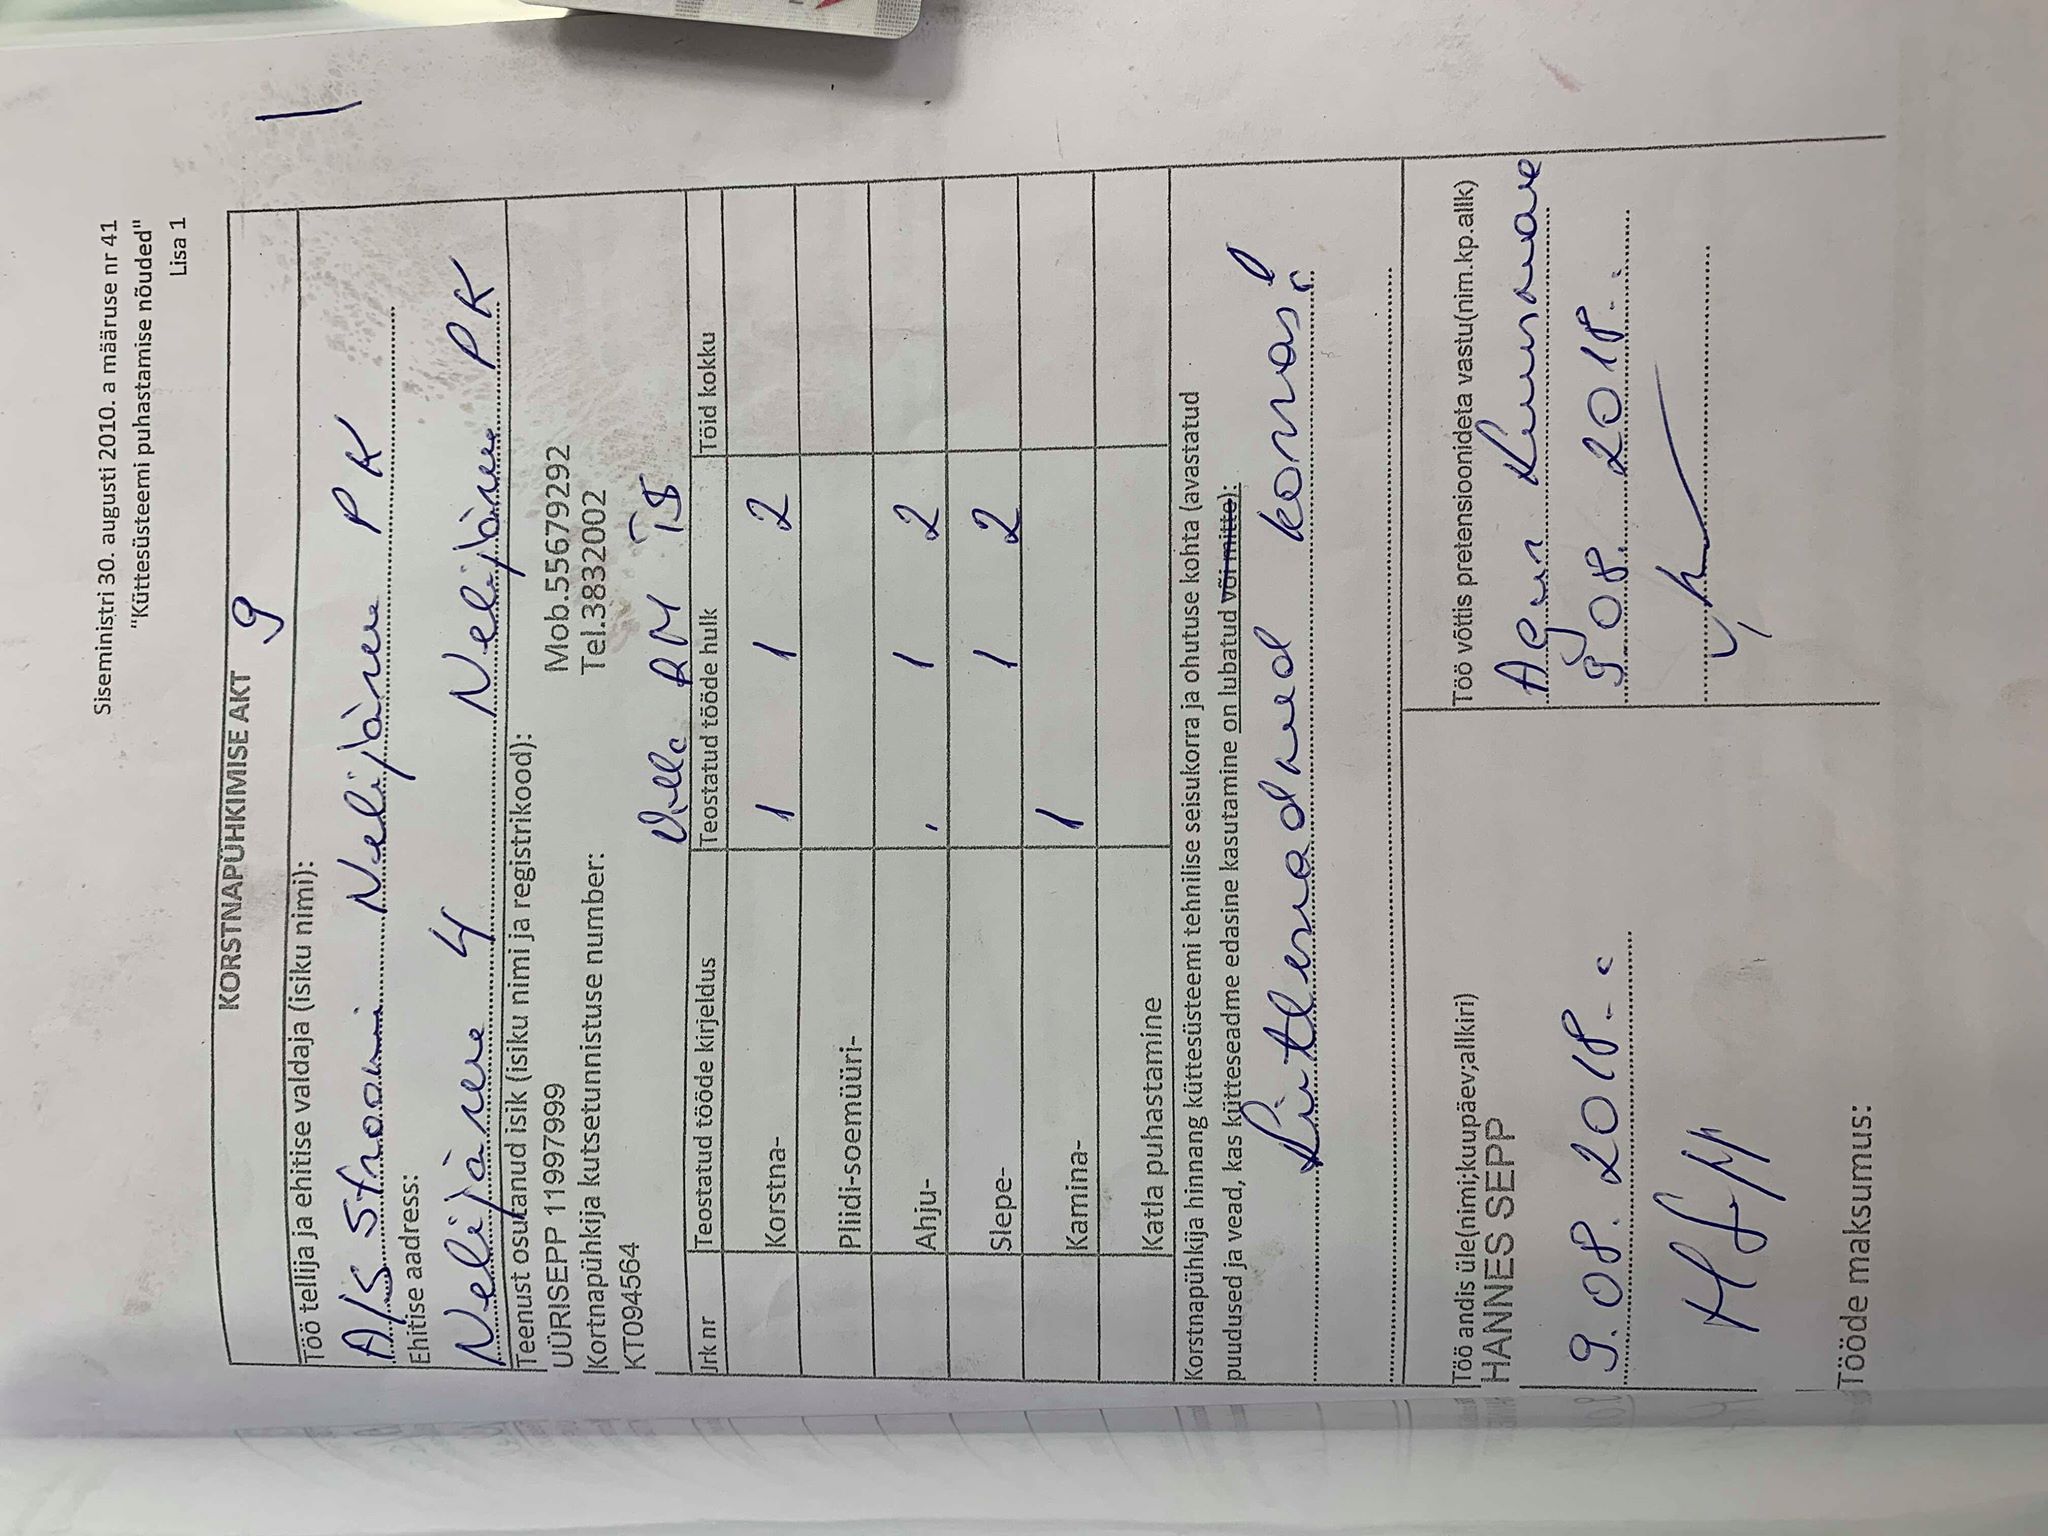 Siseministri 30. augusti 2010. a määruse nr 41
"Küttesüsteemi puhastamise nõuded"
Lisa 1
KORSTNAPÜHKIMISE AKT 9
Töö tellija ja ehitise valdaja (isiku nimi):
A/S Stroomi Nelijärve PK
Ehitise aadress:
Nelijärve 4 Nelijärve PK
Teenust osutanud isik (isiku nimi ja registrikood):
UÜRISEPP 11997999 Mob.55679292
Kortnapühkija kutsetunnistuse number: Tel.3832002
KT094564 Villa RM
Jrk nr Teostatud tööde kirjeldus Teostatud tööde hulk Töid kokku
Korstna- 1 1 2
Pliidi-soemüüri-
Ahju- 1 2
Slepe- 1 2
Kamina- 1
Katla puhastamine
Korstnapühkija hinnang küttesüsteemi tehnilise seisukorra ja ohutuse kohta (avastatud
puudused ja vead, kas kütteseadme edasine kasutamine on lubatud või mitte):
Kütteseadmed korras!
Töö andis üle(nimi;kuupäev;allkiri) Töö võttis pretensioonideta vastu(nim.kp.allk)
HANNES SEPP Agur
9.08.2018. 9.08.2018.
HSepp
Tööde maksumus: